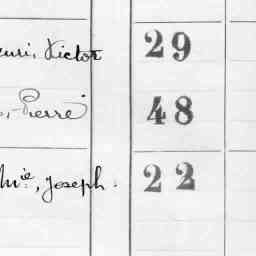 Victor 29
Pierre 48
Mie, Joseph. 22